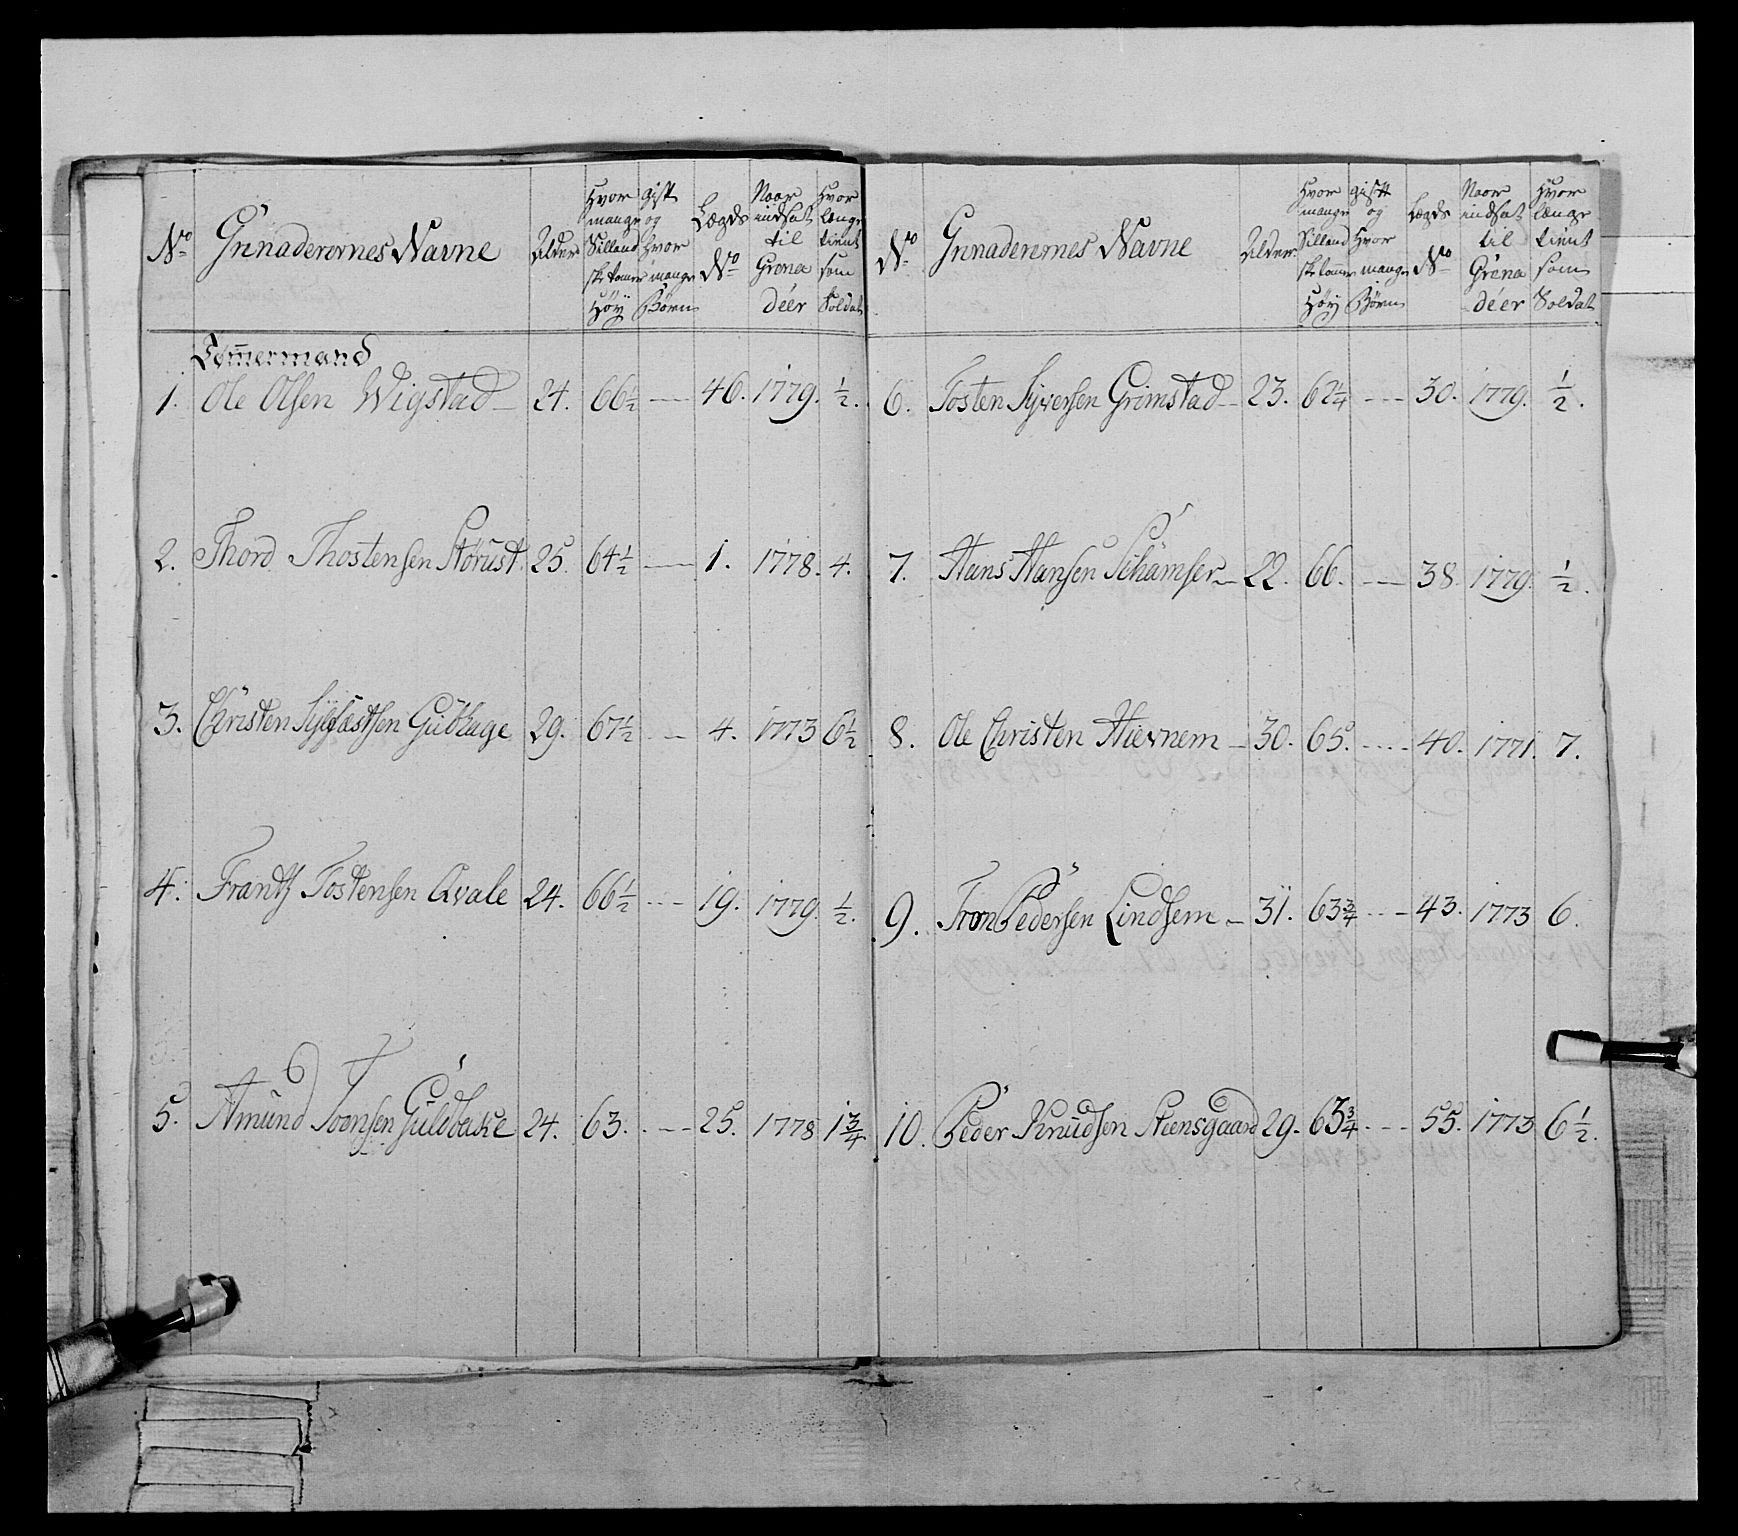 No
Grenaderernes Navne
Alder
Hvor mange Siælland ske tomer Høÿ
gift og Hvor mange Børn
Lægds No
Naar indsat til Grenadéer
Hvor længe tient som Soldat
Tømmermand
1. Ole Olsen Wigstad 24. 66½ 46. 1779. ½.
2. Thord Thostensen Störust 25. 64½ 1. 1778. 4.
3. Christen Sylfæstsen 29. 67½ 4. 1773 6½
4. Frantz Tostensen Qvale 24. 66½ 19. 1779. ½.
5. Amund Iversen 24. 63. 25. 1778 1¾
No
Grenaderernes Navne
Alder
Hvor mange Siælland ske tomer Høÿ
gift og Hvor mange Børn
Lægds No
Naar indsat til Grenadéer
Hvor længe tient som Soldat
6. Tosten Syversen Grimstad 23. 62¼ 30. 1779. ½.
7. Hans Hansen 22. 66. 38. 1779. ½.
8. Ole Christen 30. 65. 40. 1771. 7.
9. Tron Pedersen Lindsem 31. 63¾ 43. 1773 6.
10. Peder Knudsen Steensgaard 29. 63¾ 55. 1773 6½.